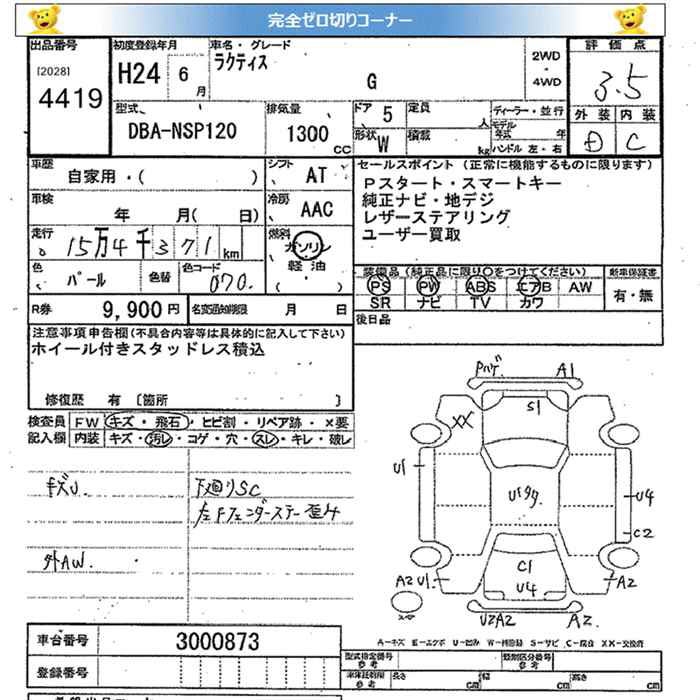 完全ゼロ切りコーナー
出品番号 初度登録年月 車名・グレード 2WD・4WD 評価点
[2028] 4419 H24 6月 ラクティス G 3.5
型式 排気量 ドア 5 定員 人 ディーラー・並行 外装 内装
DBA-NSP120 1300 CC 形状 W 積載 kg モデル年式 年 ハンドル 左・右 D C
車歴 自家用・( ) シフト AT
セールスポイント (正常に機能するものに限ります)
Pスタート・スマートキー
純正ナビ・地デジ
レザーステアリング
ユーザー買取
車検 年 月( 日) 冷房 AAC
走行 15万4千371km 燃料 ガソリン 軽油 ( )
色 パール 色替 色コード 070
装備品 (純正品に限り○をつけてください) 新車保証書
PS PW ABS エアB AW 有・無
SR ナビ TV カワ
R券 9,900円 名変通知期限 月 日
後日品
注意事項申告欄(不具合内容等は具体的に記入して下さい)
ホイール付きスタッドレス積込
修復歴 有 [箇所 ]
検査員記入欄 FW キズ・飛石・ヒビ割・リペア跡・×要
内装 キズ・汚レ・コゲ・穴・スレ・キレ・破レ
下廻りSC
左Fフェンダーステー歪み
外AW.
Pハゲ A1
S1
XX
U1
U4
C2
C1
U4
A2 U1 A2
U2A2 A2
A-キズ E-エクボ U-凹み W-補修跡 S-サビ C-腐食 XX-交換済
車台番号 3000873
登録番号
型式指定番号 参考 類別区分番号 参考
車体寸法 参考 長さ cm 幅 cm 高さ cm